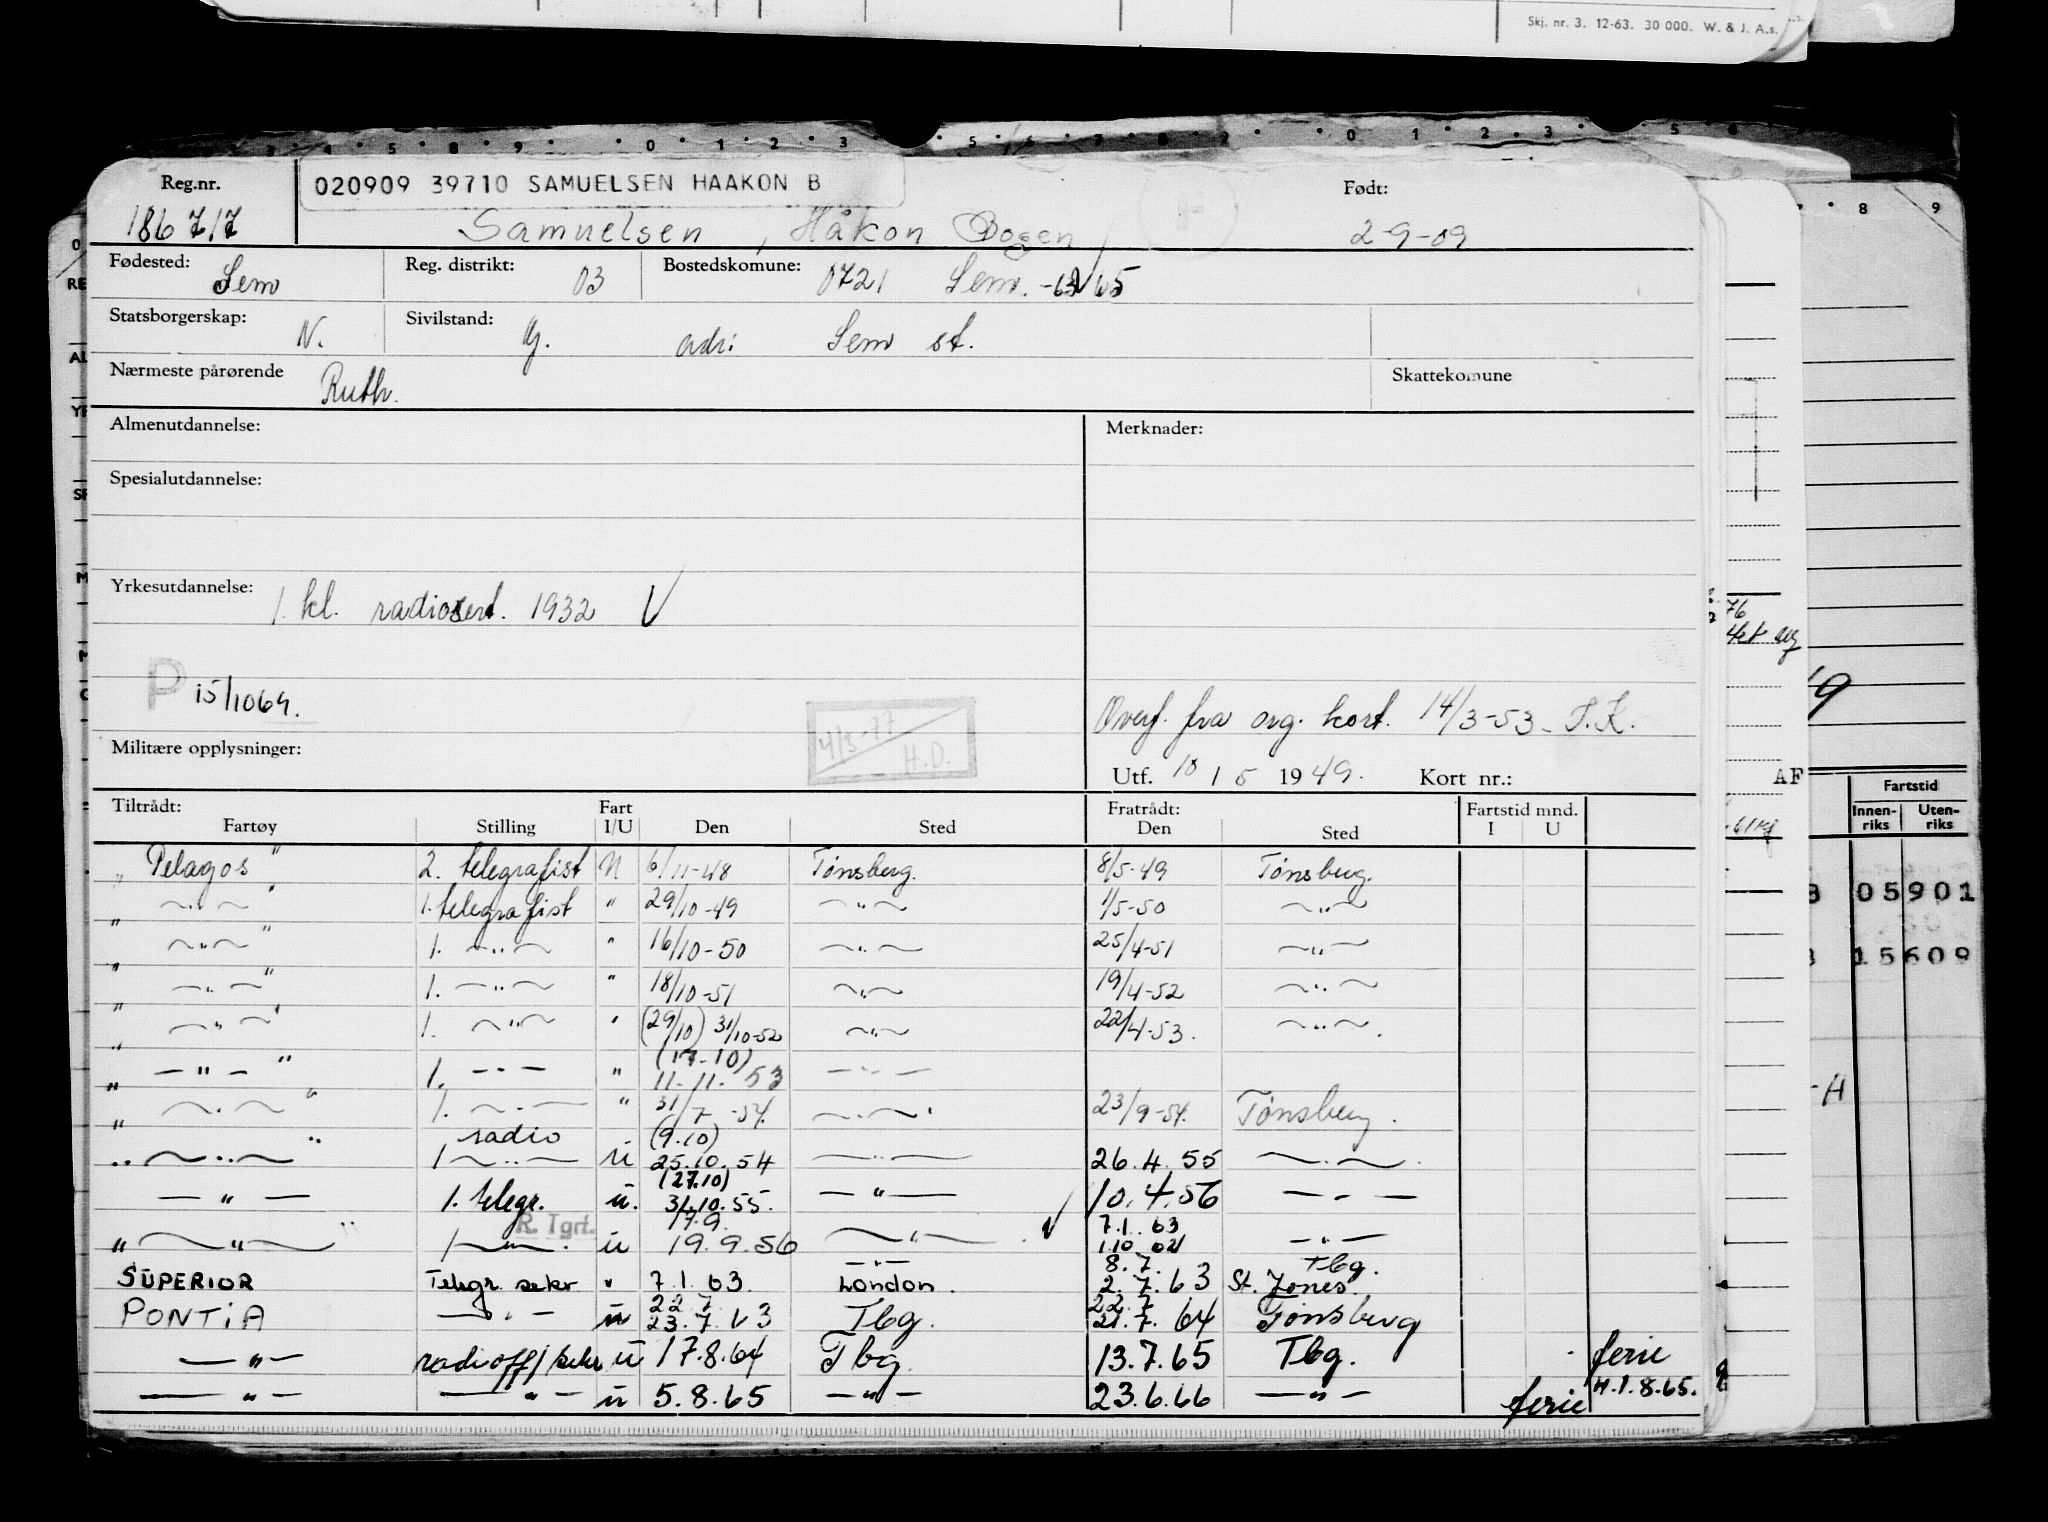 Skj. nr. 3. 12-63. 30 000. W. & J. A.s.
Reg.nr. 020909 39710 SAMUELSEN HAAKON B Født:
186717 Samuelsen, Håkon Bogen 2-9-09
Fødested: Sem Reg. distrikt: 03 Bostedskomune: 0721 Sem.
Statsborgerskap: N. Sivilstand: g. adr: Sem st.
Nærmeste pårørende Ruth. Skattekomune
Almenutdannelse: Merknader:
Spesialutdannelse:
Yrkesutdannelse: 1. kl. radiosert. 1932 V
P 15/1064.
4/3-77 H.D.
Overf. fra org. kort. 14/3-53 - T.K.
Militære opplysninger: Utf. 10 / 5 1949. Kort nr.:
Tiltrådt: Fart Fratrådt: Fartstid mnd.
Fartøy Stilling I/U Den Sted Den Sted I U
" Pelagos " 2. telegrafist U 6/11-48 Tønsberg. 8/5-49 Tønsberg.
" — " — " 1. telegrafist " 29/10-49 — " — 1/5-50 — " —
" — " — " 1. — " — " 16/10-50 — " — 25/4-51 — " —
" — " — " 1. — " — " 18/10-51 — " — 19/4-52 — " —
" — " — " 1. — " — " (29/10) 31/10-52 — " — 22/4-53. — " — .
" — " — " 1. — " — " (17-10) 11.11.53 — " —
" — " — " 1. — " — " 31/7-54. — " — 23/9-54. Tønsberg.
" — " — " 1 radio — " — U (9.10) 25.10.54 — " — 26.4.55 — " — .
— " — 1. telegr. U. (27.10) 31.10.55. — " — 10.4.56 — " —
R. Tgrt.
" — " — " 1 — " — . U 17.9. 19.9.56 — " — . V 7.1.63 1.10.62 — " —
SUPERIOR Telegr. sekr " 7.1.63. London. 8.7. 2.7.63 Tbg. St. Jones.
PONTIA — " — U 22.7. 23.7.63 Tbg. 22.7. 21.7.64 Tønsberg
— " — radioff/sekr U 17.8.64 Tbg. 13.7.65 Tbg. ferie
— " — — " — U 5.8.65 — " — 23.6.66 — " — ferie H.1.8.65.
Fartstid
Innen-riks Uten-riks
05901
15609